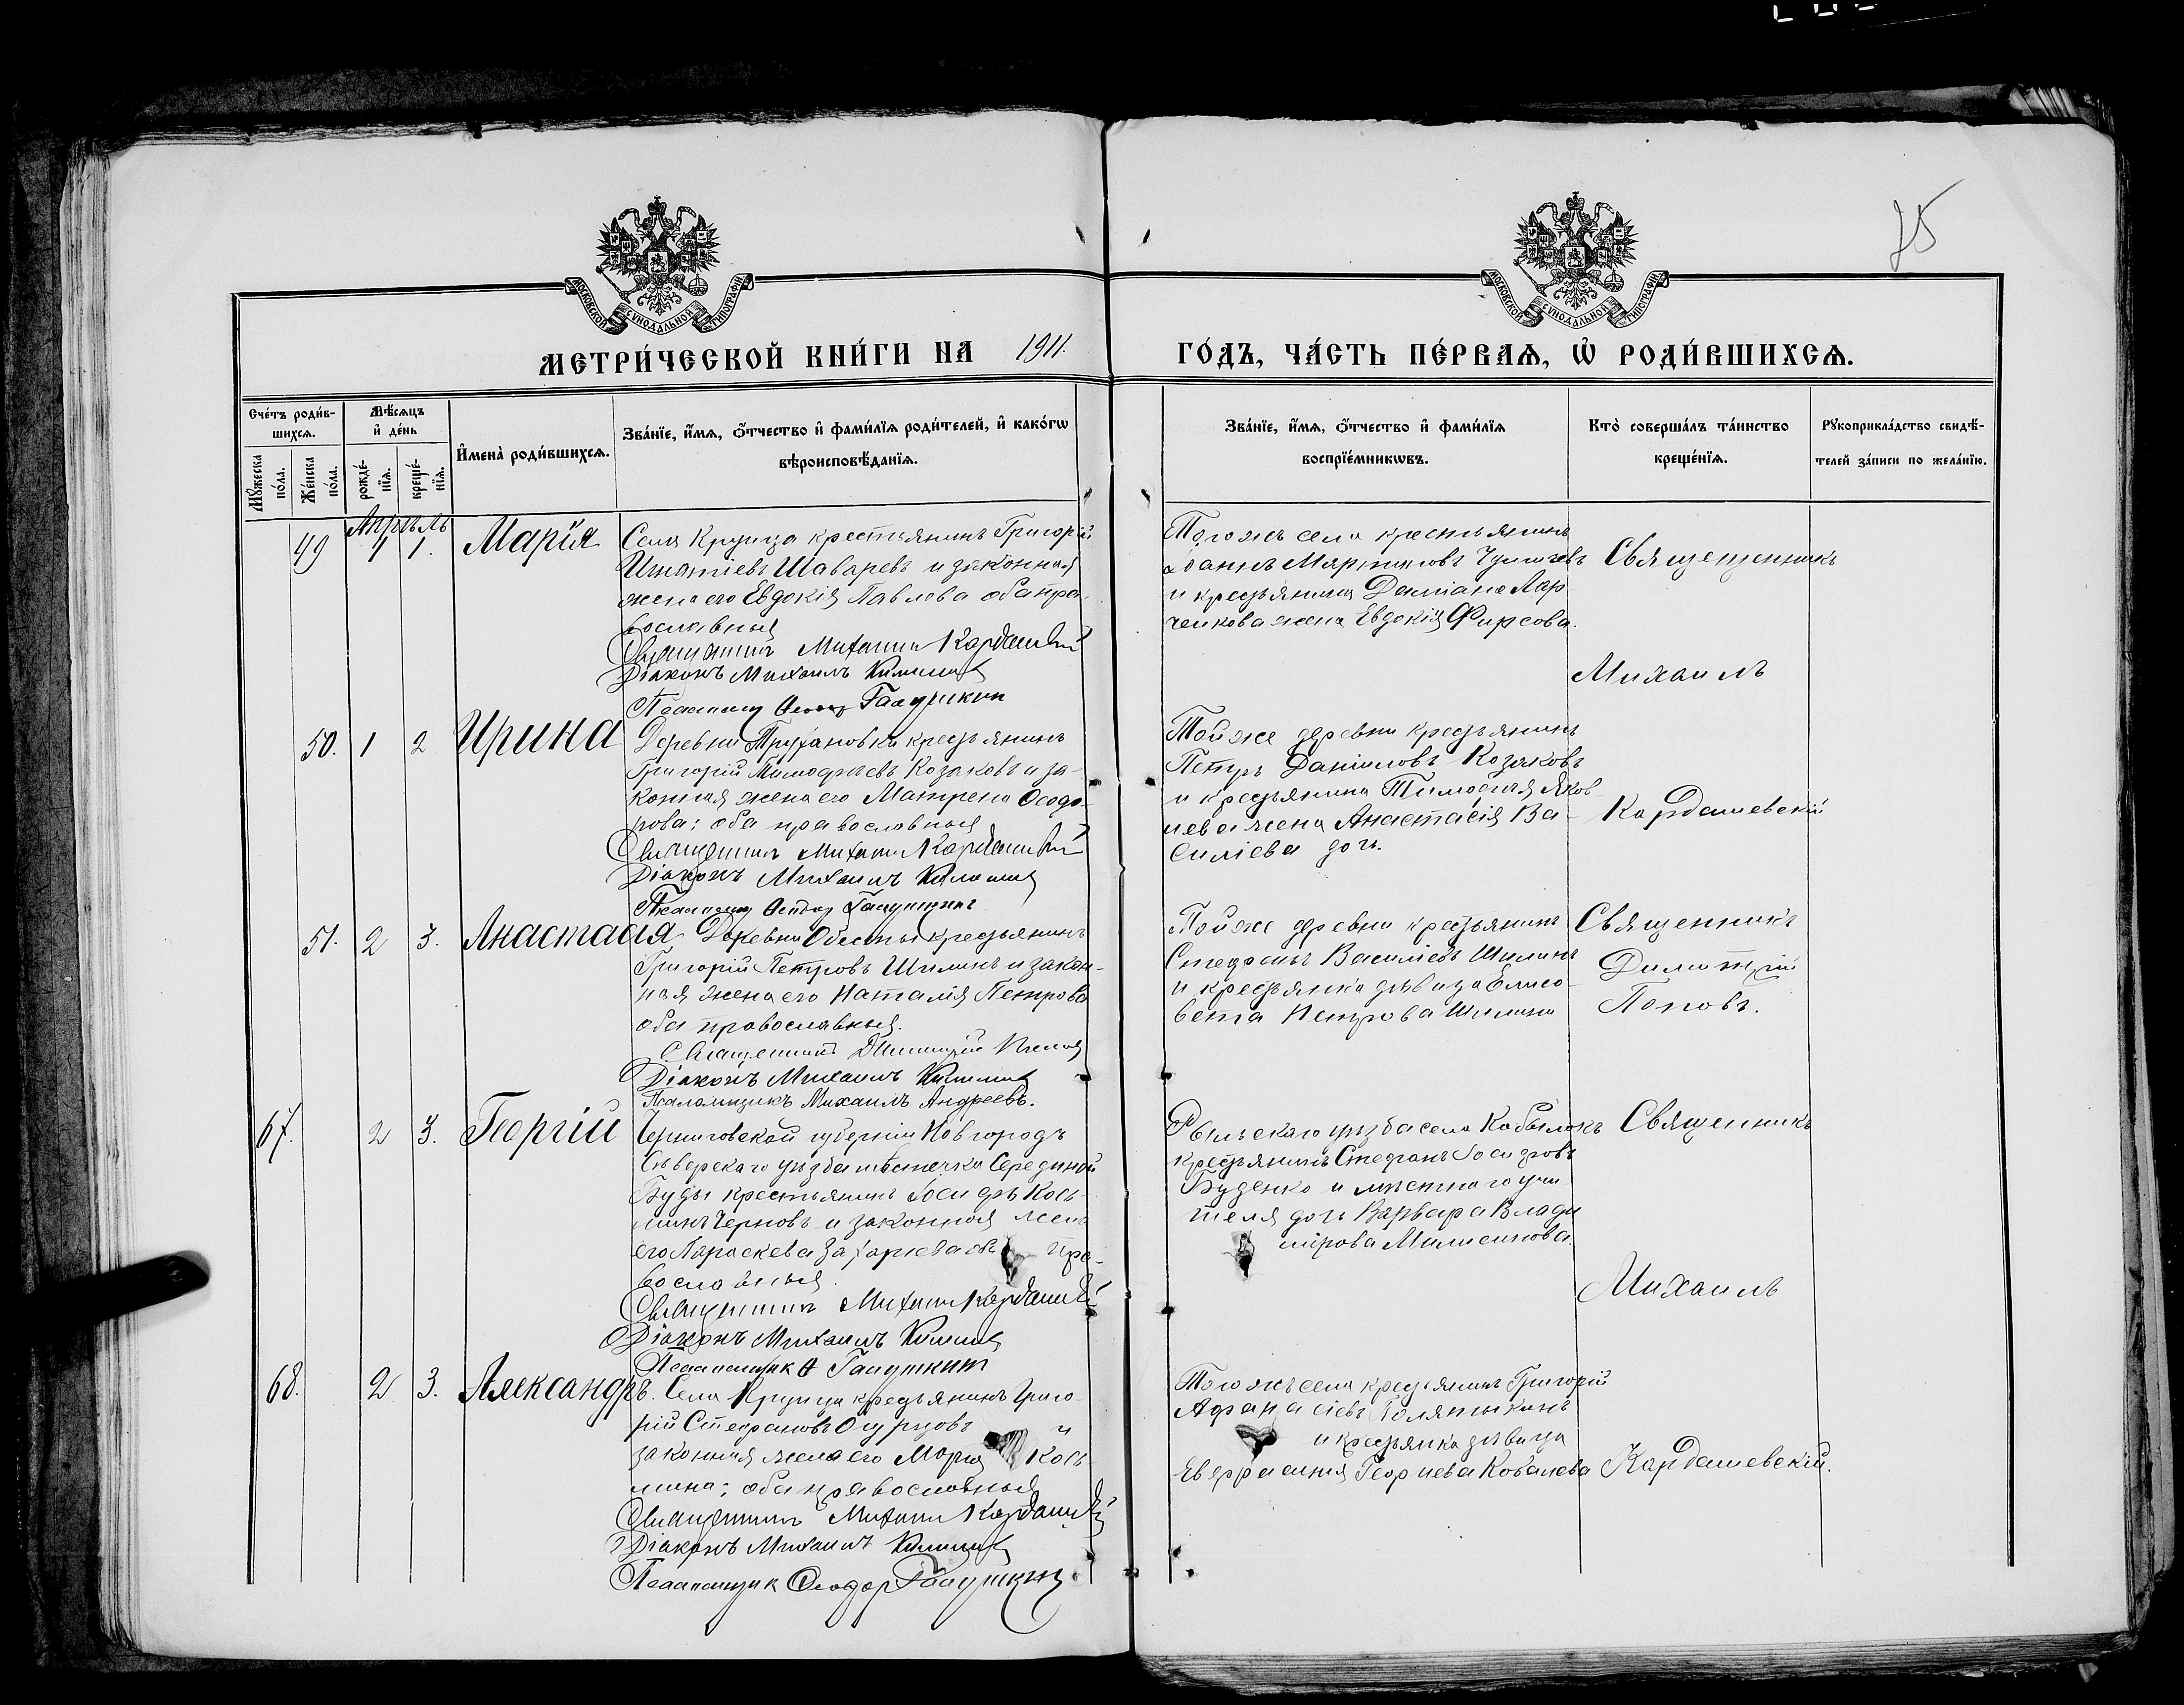 75
МОСКОВСКОЙ СѴНОДАЛЬНОЙ ТИПОГРАФІИ
МОСКОВСКОЙ СѴНОДАЛЬНОЙ ТИПОГРАФІИ
МЕТРИ́ЧЕСКОЙ КНИ́ГИ НА 1911. ГО́ДЪ, ЧА́СТЬ ПЕ́РВАѦ, Ѡ҆ РОДИ́ВШИХСѦ.
Сче́тъ роди́в-
шихсѧ.
Мꙋ́жеска по́ла.
Же́нска по́ла.
Мѣ́сѧцъ
и҆ де́нь
рожде́-
нїѧ.
креще́-
нїѧ.
И҆мена̀ роди́вшихсѧ.
Зва́нїе, и҆́мѧ, ѻ҆́тчество и҆ фами́лїѧ роди́телей, и҆ како́гѡ
вѣроисповѣ́данїѧ.
Зва́нїе, и҆́мѧ, ѻ҆́тчество и҆ фами́лїѧ
воспрїе́мникѡвъ.
Кто̀ соверша́лъ та́инство
креще́нїѧ.
Рꙋкоприкла́дство свидѣ́-
телей за́писи по жела́нїю.
Апрѣль
49 1 1. Марія
Села Крупца крестьянинъ Григорій
Игнатіевъ Шаваревъ и законная
жена его Евдокія Павлова оба пра-
вославныя
Священникъ Михаилъ Кардашевскій
Діаконъ Михаилъ
Псаломщ Галушкин
Того жъ села крестьянинъ
Іоаннъ Мартиновъ
и крестьянина Даміана Лар
ченкова жена Евдокія Фирсова.
Священникъ
Михаилъ
50. 1 2 Ирина
Деревни Труфановки крестьянинъ
Григорій Тимофеевъ Козаковъ и за-
конная жена его Матрена Ѳеодо-
рова; оба православныя
Священникъ Михаилъ Кардашевскій
Діаконъ Михаилъ
Псаломщ Ѳеодор Галушкинъ
Той же деревни крестьянинъ
Петръ Даніиловъ Козаковъ
и крестьянина Тимофея Яков
лева жена Анастасія Ва-
силіева дочь.
Кардашевскій
51. 2 3. Анастасія
Деревни Обесты крестьянинъ
Григорій Петровъ Шилинъ и закон-
ная жена его Наталія Петрова
оба православныя.
Священникъ Димитрій Попов
Діаконъ Михаилъ
Псаломщикъ Михаилъ Андреевъ.
Той же деревни крестьянинъ
Стефанъ Василіевъ Шилинъ
и крестьянка дѣвица Елиса-
вета Петрова Шилина
Священникъ
Димитрій
Поповъ.
67. 2 3. Георгій
Черниговской губерніи Новгородъ
Сѣверскаго уѣзда мѣстечка Середины
Буды крестьянинъ Іосифъ Кось-
минъ Черновъ и законная жена
его Параскева Захаріева оба пра-
вославныя.
Священникъ Михаилъ Кардашевскій
Діаконъ Михаилъ
Псаломщик Ѳ Галушкинъ
Рыльскаго уѣзда села Кобылокъ
крестьянинъ Стефанъ Іосифовъ
Буденко и мѣстнаго учи
теля дочь Варвара Влади
мірова
Священникъ
Михаилъ
68. 2 3. Александръ.
Села Крупца крестьянинъ Григо-
рій Стефановъ Огурцовъ и
законная жена его Марія Кось-
мина; оба православныя
Священникъ Михаилъ Кардашевскій
Діаконъ Михаилъ
Псаломщик Ѳеодор Галушкинъ
Того жъ села крестьянинъ Григорій
Афанасіевъ
и крестьянка дѣвица
Евфросинія Георгіева Ковалева
Кардашевскій.